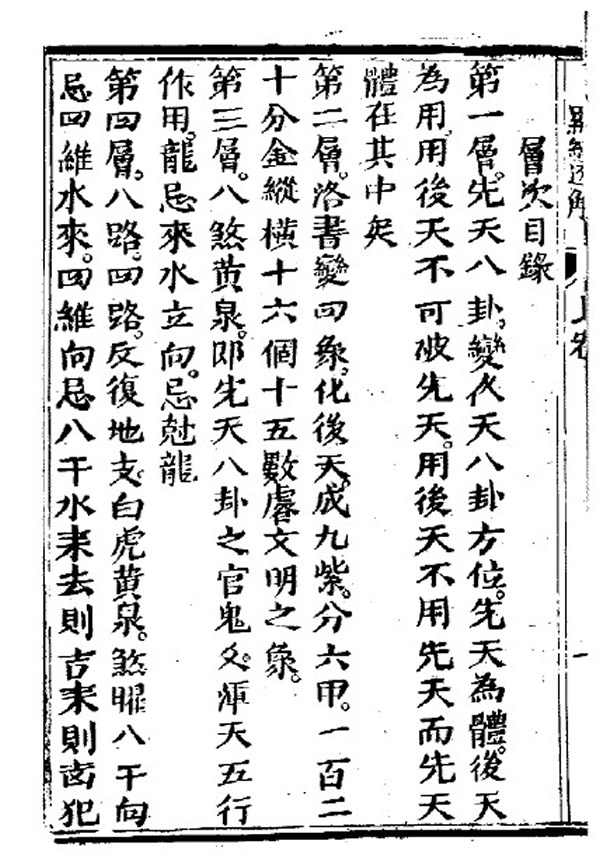 羅經透解
上卷
一
層次目錄
第一層。先天八卦。變後天八卦方位。先天為體。後天
為用。用後天不可破先天。用後天不用先天而先天
體在其中矣
第二層。洛書變四象。化後天。成九紫。分六甲。一百二
十分金縱橫十六個十五數睿文明之象。
第三層。八煞黃泉。即先天八卦之官鬼爻。渾天五行
作用。龍忌來水立向。忌尅龍
第四層。八路。四路。反復地支。白虎黃泉。煞曜八干向
忌四維水來。四維向忌八干水来去則吉来則凶犯